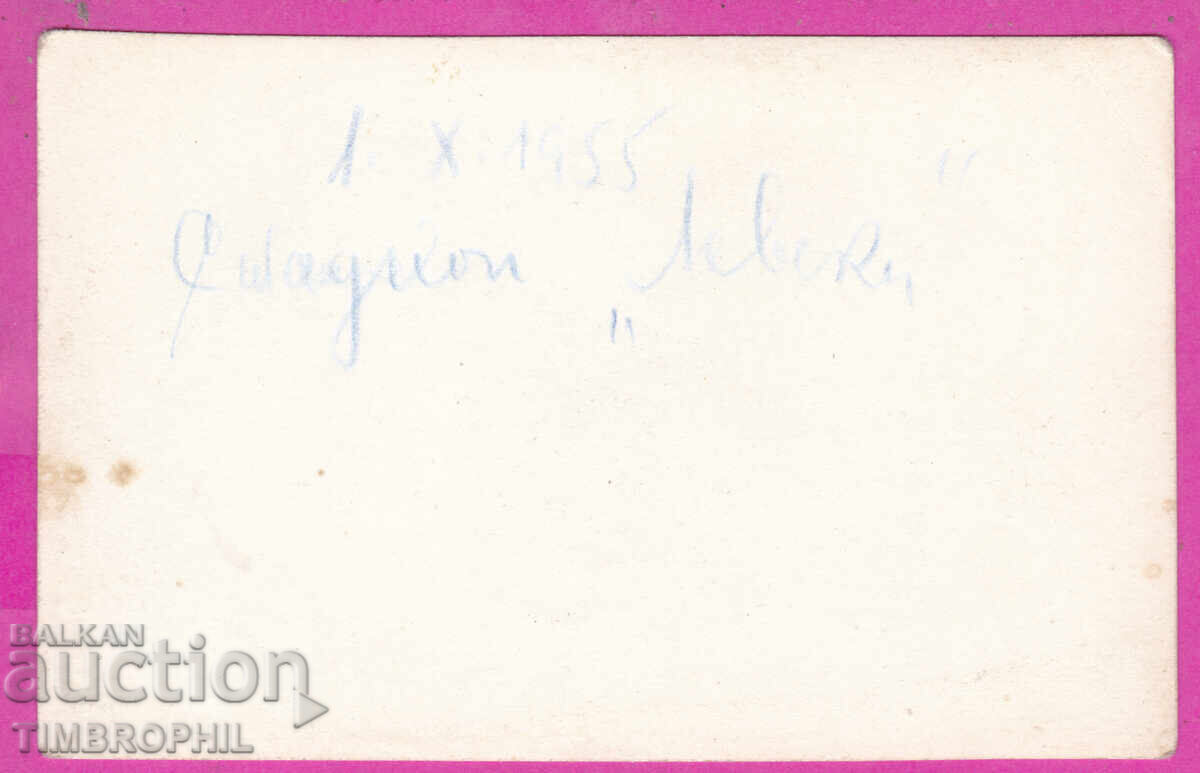 1. X. 1955
Стадион „Левски"
BALKAN
auction
TIMBROPHIL